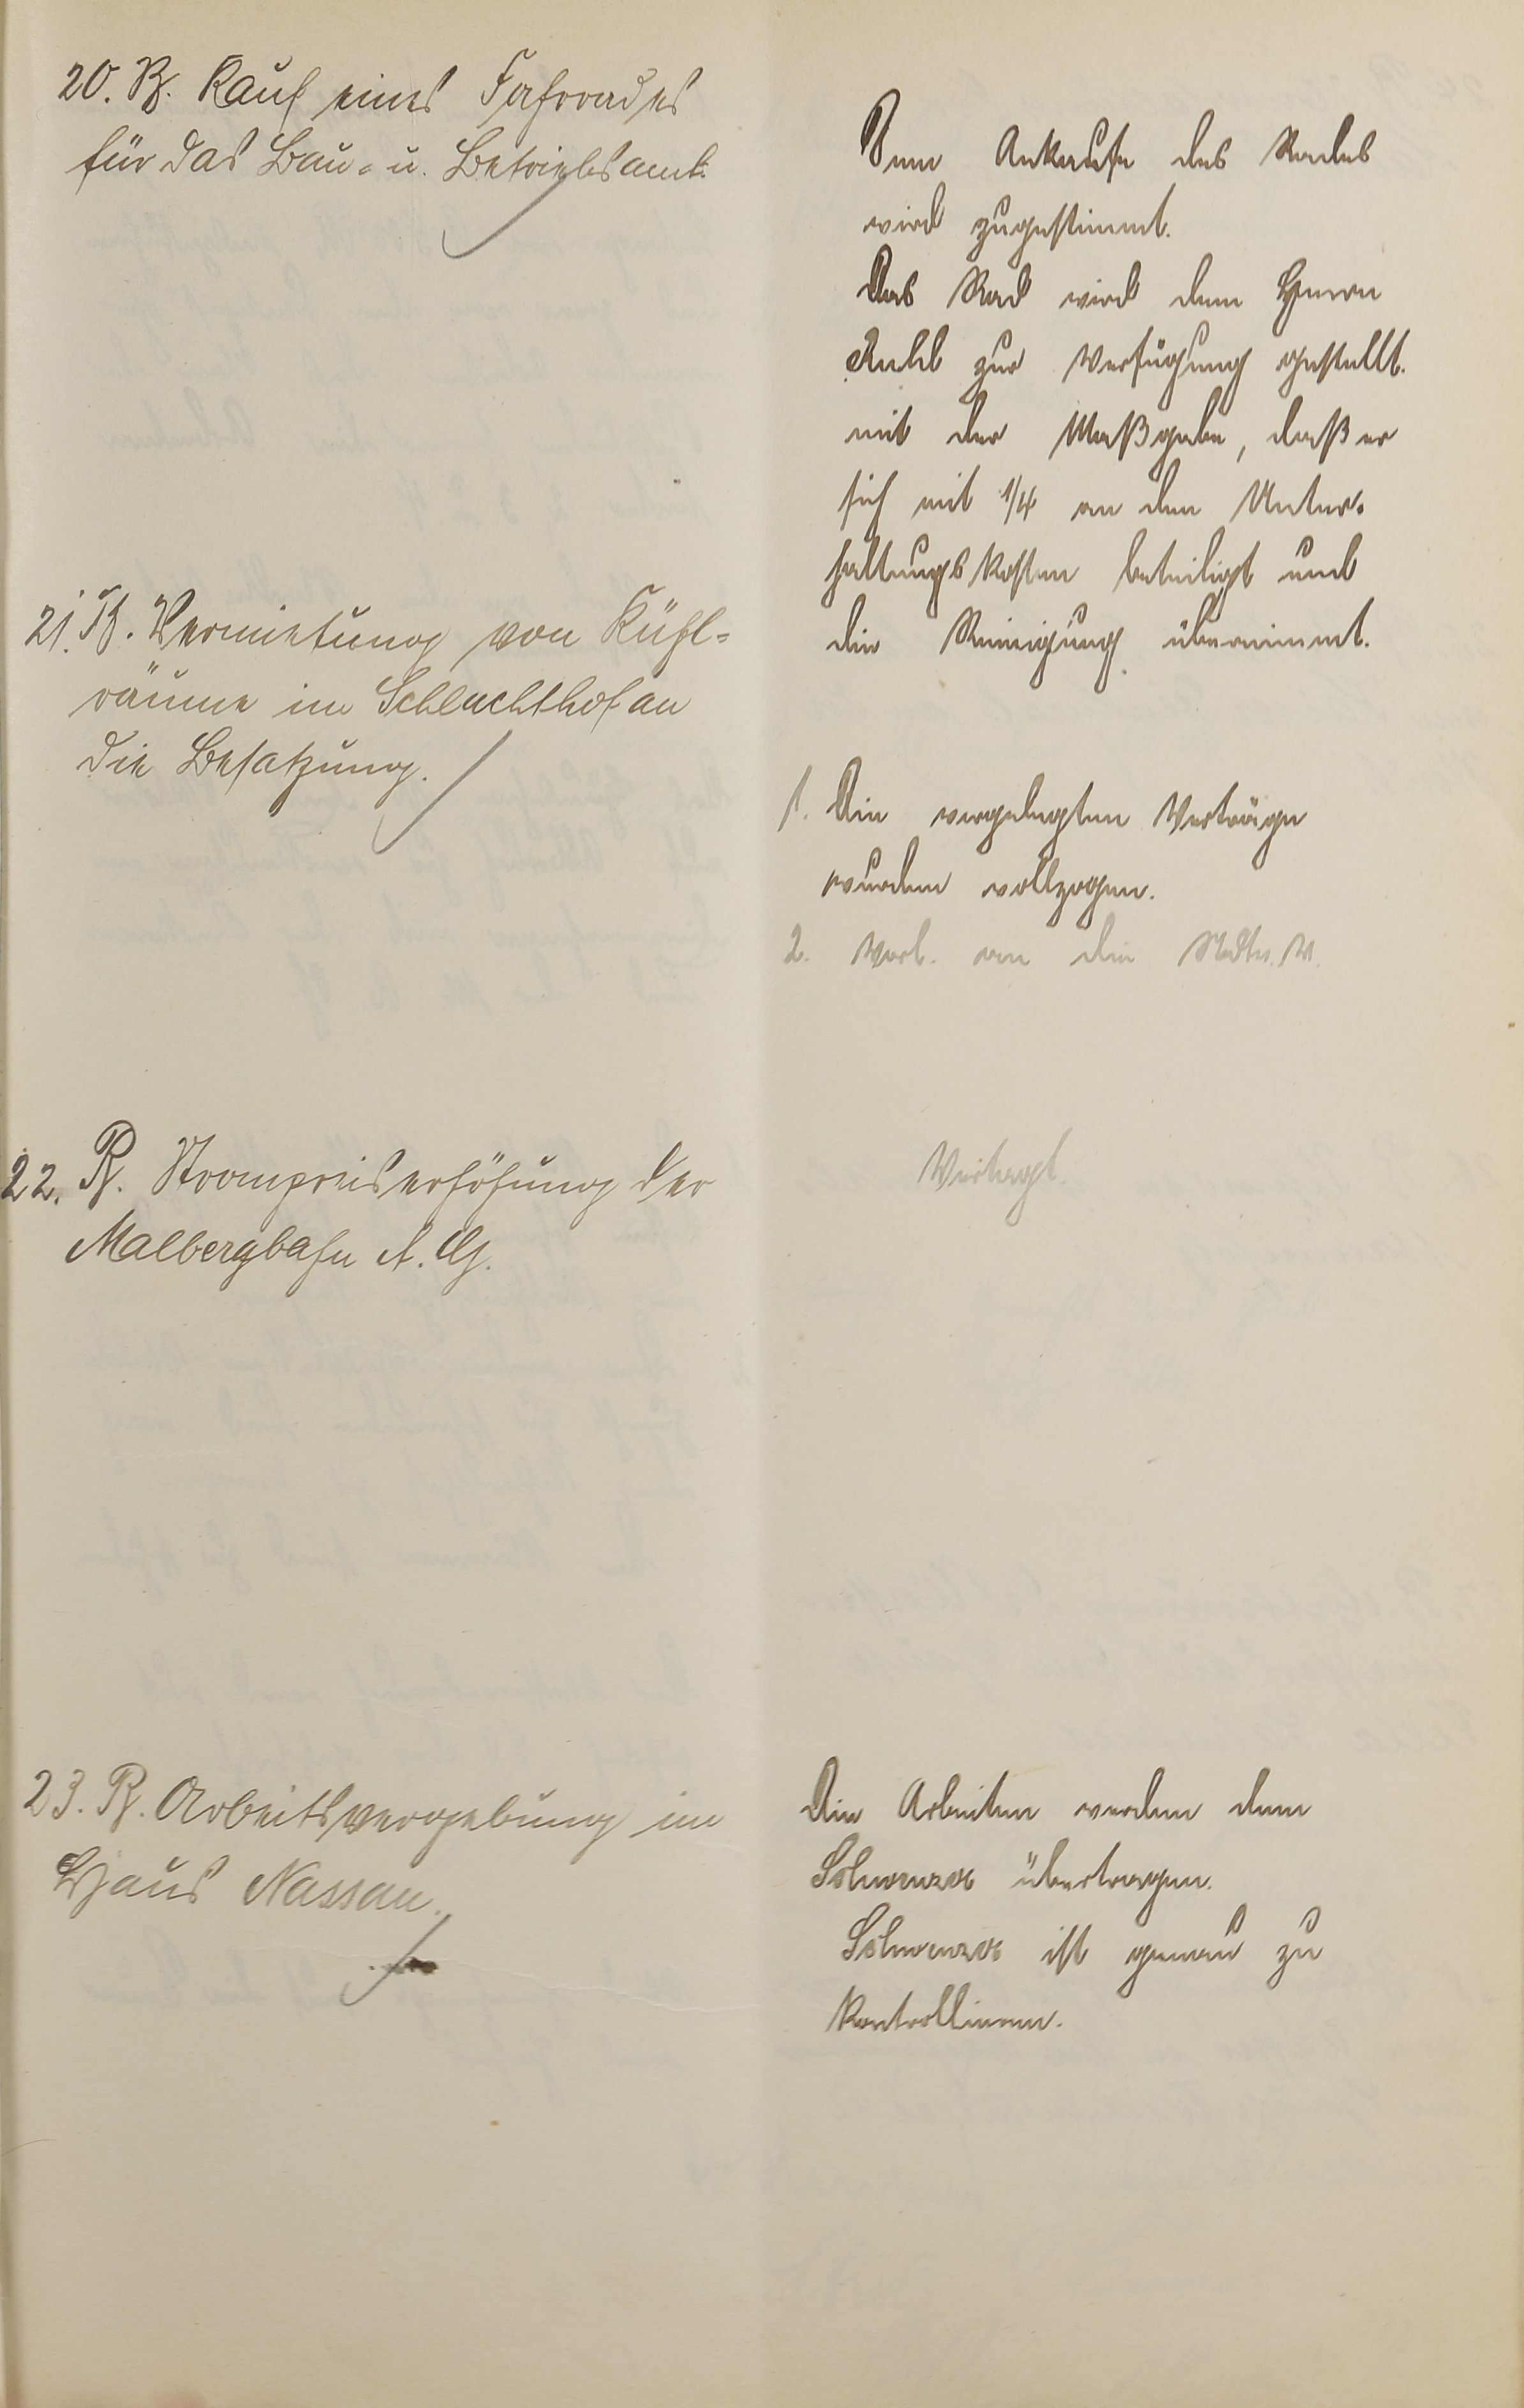 20. B. Kauf eines Fahrrades
für das Bau- u. Betriebsamt.
Dem Ankaufe des Rades
wird zugestimmt.
Das Rad wird dem Herrn
Ruhl zur Verfügung gestellt.
mit der Maßgabe, daß er
sich mit 1/4 an den Unter-
haltungskosten beteiligt und
die Reinigung übernimmt.
21. B. Vermietung von Kühl-
räume im Schlachthof an
die Besatzung.
1. Die vorgelegten Verträge
wurden vollzogen.
2. Vorl. an die Stadtv. V.
22. B. Strompreiserhöhung der
Malbergbahn A. G.
Vertagt.
23. B. Arbeitsvergebung im
Haus Nassau.
Die Arbeiten werden dem
übertragen.
ist genau zu
kontrollieren.